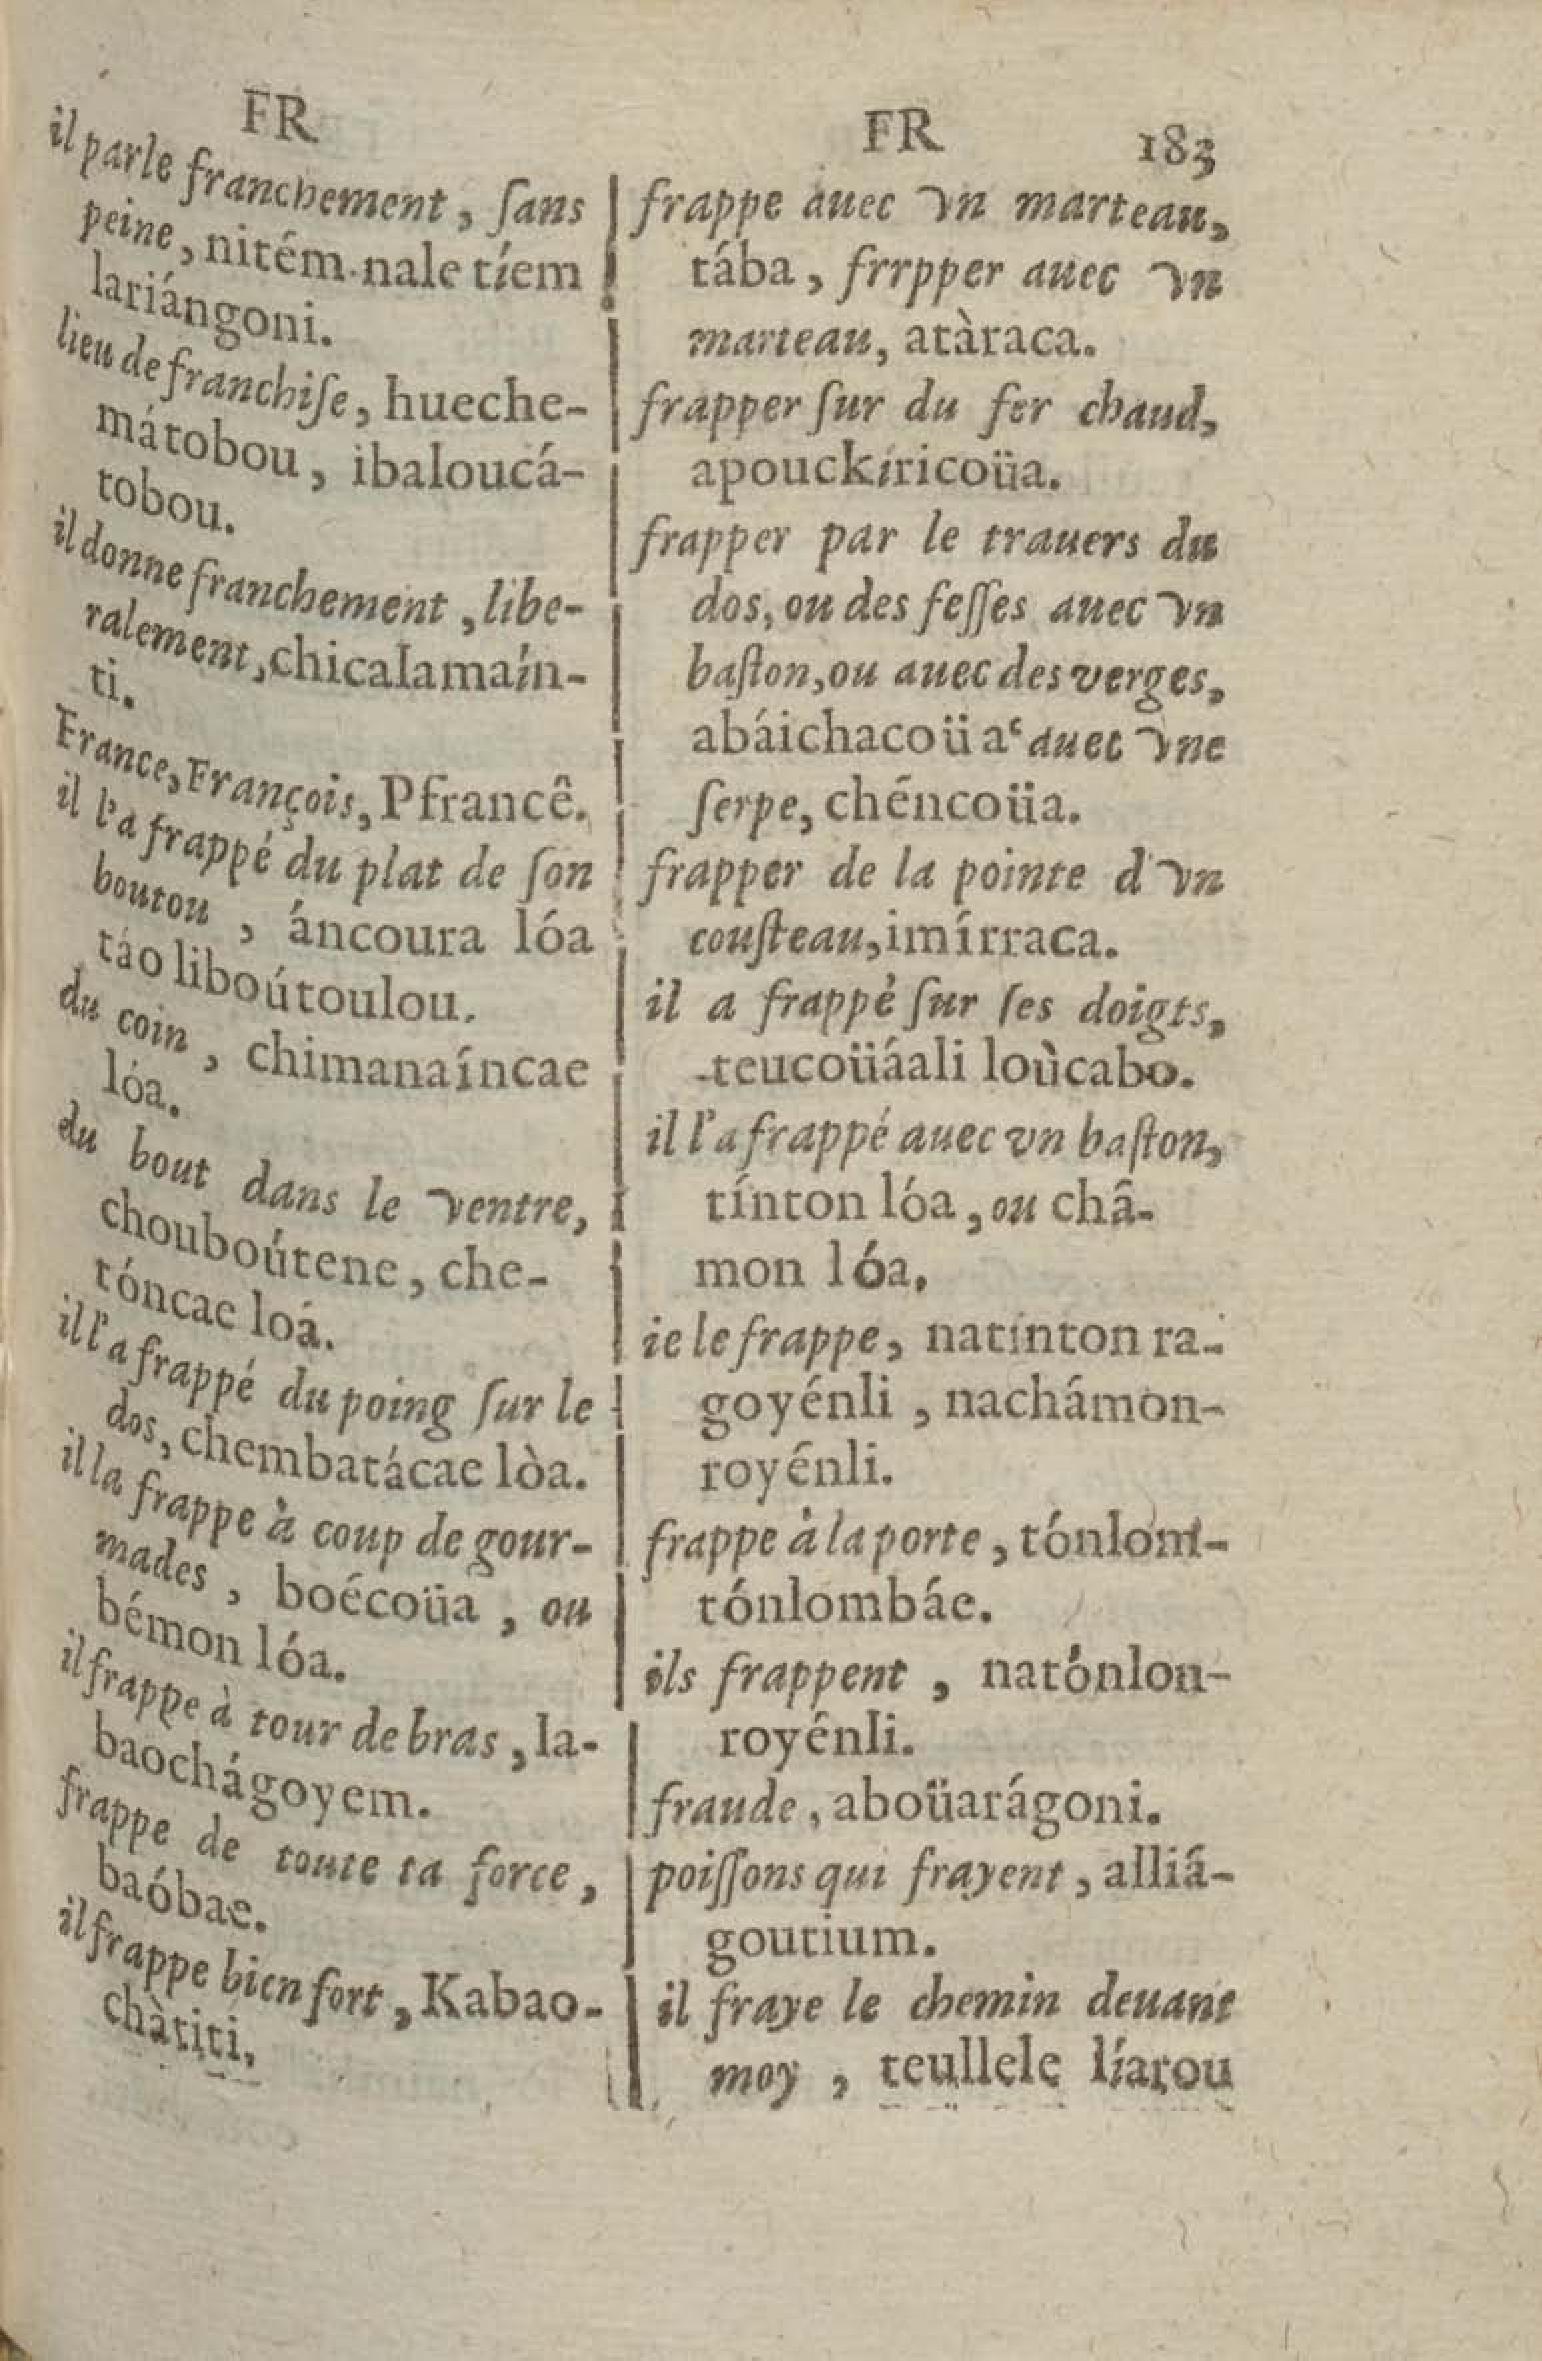 FR
il parle franchement, ſans
peine, nitém nale tíem
lariángoni.
lieu de franchiſe, hueche-
mátobou, ibaloucá-
tobou.
il donne franchement, libe-
ralement, chicalamaín-
ti.
France, François, Pfrancê.
il l'a frappé du plat de ſon
boutou, áncoura lóa
táo liboútoulou.
du coin, chimanaíncae
lóa.
du bout dans le ventre,
chouboútene, che-
tóncae loá.
il l'a frappé du poing ſur le
dos, chembatácae lòa.
il la frappe à coup de gour-
mades, boécoüa, ou
bémon lóa.
il frappe à tour de bras, la-
baochágoyem.
frappe de toute ta force,
baóbae.
il frappe bien fort, Kabao-
chàtiti,
FR 183
frappe auec vn marteau,
tába, frrpper auec vn
marteau, atàraca.
frapper ſur du fer chaud,
apouckíricoüa.
frapper par le trauers du
dos, ou des feſſes auec vn
baſton, ou auec des verges,
abáichacoüa auec vne
ſerpe, chéncoüa.
frapper de la pointe d'vn
couſteau, imírraca.
il a frappé ſur ſes doigts,
teucoüáali loùcabo.
il l'a frappé auec vn baſton,
tínton lóa, ou châ-
mon lóa,
ie le frappe, natínton ra-
goyénli, nachámon-
royénli.
frappe à la porte, tónlom-
tónlombáe.
ils frappent, natónlon-
royénli.
fraude, aboüarágoni.
poiſſons qui frayent, alliá-
goutium.
il fraye le chemin deuant
moy, teullele líarou